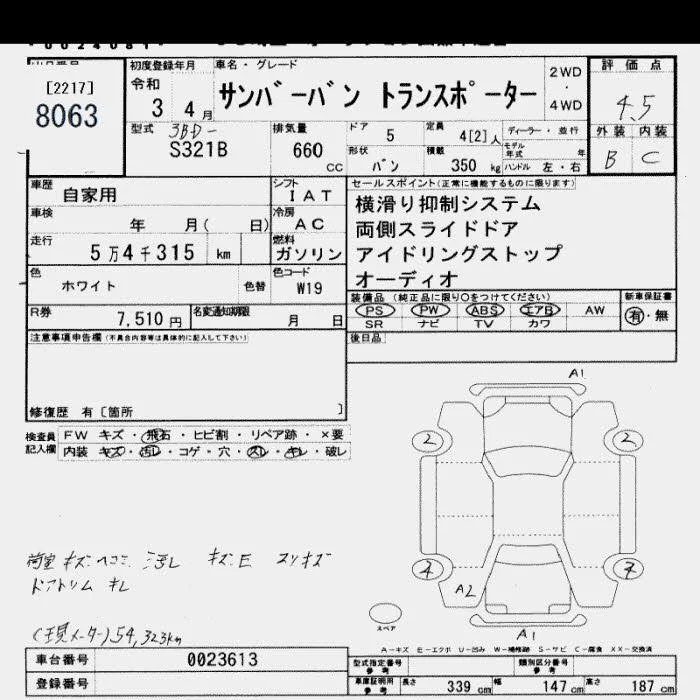 初度登録年月
車名・グレード
評価点
[2217]
8063
令和
3 4月
サンバーバン トランスポーター
2WD
・
4WD
4.5
型式
3BD-
S321B
排気量
660
CC
ドア
5
定員
4[2]人
ディーラー・並行
モデル年式 年
形状
バン
積載
350 kg
ハンドル 左・右
外装 内装
B C
車歴
自家用
シフト
IAT
セールスポイント(正常に機能するものに限ります)
横滑り抑制システム
両側スライドドア
アイドリングストップ
オーディオ
車検
年 月( 日)
冷房
AC
走行
5万4千315 km
燃料
ガソリン
色
ホワイト
色替
色コード
W19
装備品 (純正品に限り○をつけてください)
PS PW ABS エアB AW
SR ナビ TV カワ
新車保証書
有・無
R券
7,510円
名変通知期限
月 日
後日品
注意事項申告欄(不具合内容等は具体的に記入して下さい)
修復歴 有〔箇所 〕
検査員
記入欄
FW キズ・飛石・ヒビ割・リペア跡・×要
内装 キズ・汚レ・コゲ・穴・スレ・キレ・破レ
A1
2 2
A2
スペア
A1
荷室 キズ ヘコミ 汚レ キズ、E スリキズ
ドアトリム キレ
(現メーター)54,323km
A-キズ E-エクボ U-凹み W-補修跡 S-サビ C-腐食 XX-交換済
車台番号
0023613
登録番号
型式指定番号
参考
類別区分番号
参考
車庫証明用
参考
長さ 339 cm
幅 147 cm
高さ 187 cm